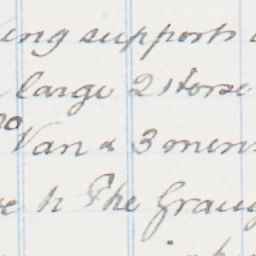 ing supports
large 2 Horse
Van & 3 men
h The Grang